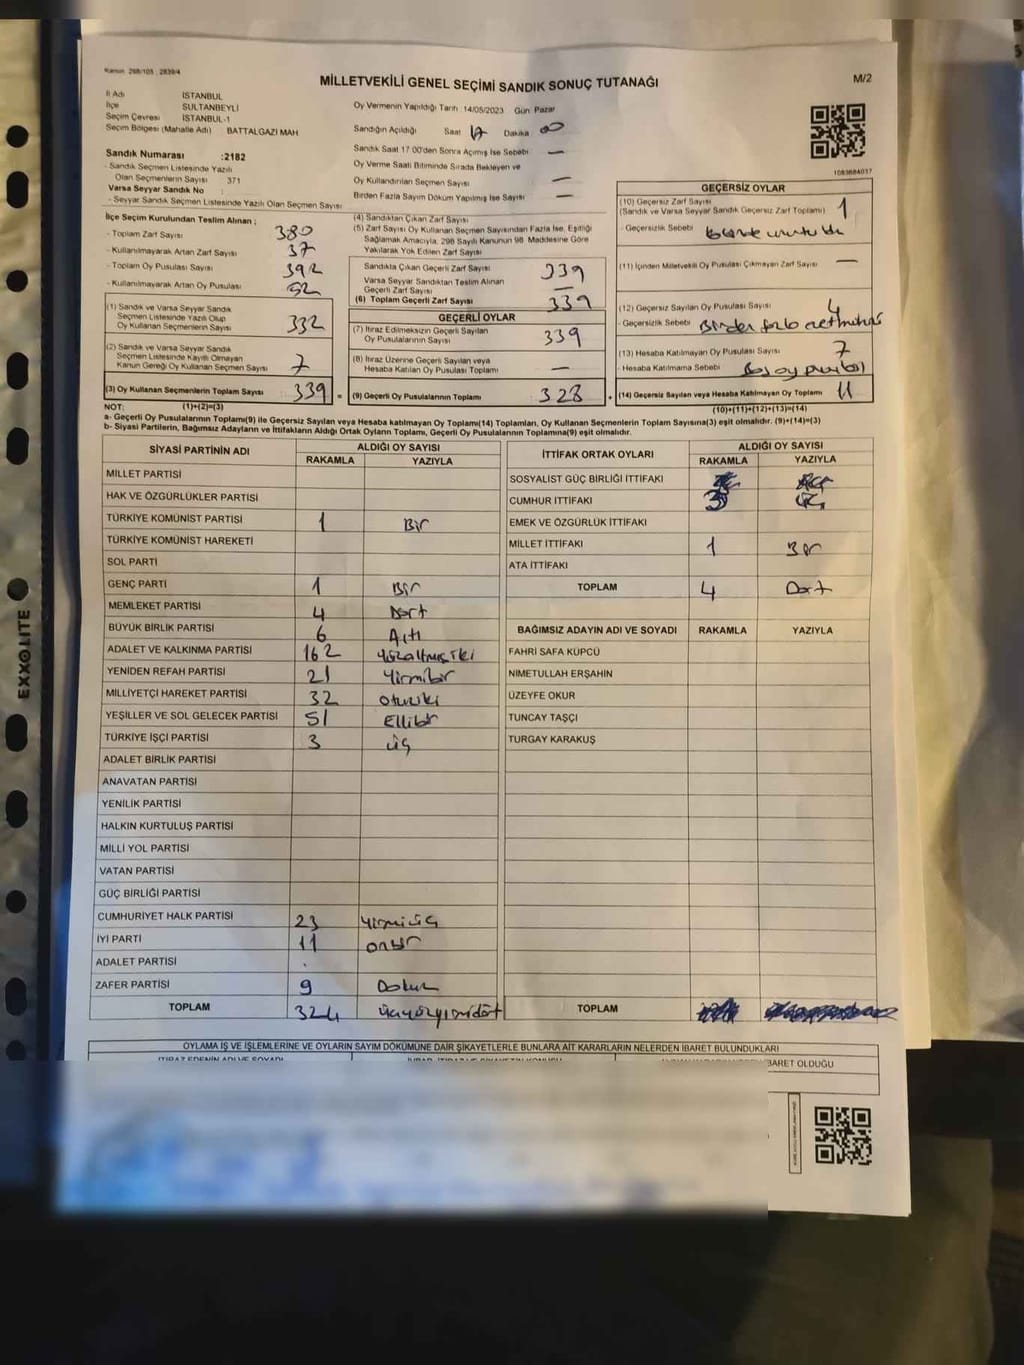 Kanun: 298/105 ; 2839/4
MİLLETVEKİLİ GENEL SEÇİMİ SANDIK SONUÇ TUTANAĞI
M/2
İl Adı İSTANBUL
İlçe SULTANBEYLİ
Seçim Çevresi İSTANBUL-1
Seçim Bölgesi (Mahalle Adı) BATTALGAZİ MAH
Sandık Numarası :2182
- Sandık Seçmen Listesinde Yazılı
Olan Seçmenlerin Sayısı 371
Varsa Seyyar Sandık No :
- Seyyar Sandık Seçmen Listesinde Yazılı Olan Seçmen Sayısı
Oy Vermenin Yapıldığı Tarih 14/05/2023 Gün Pazar
Sandığın Açıldığı Saat 17 Dakika 00
Sandık Saat 17.00'den Sonra Açılmış İse Sebebi —
Oy Verme Saati Bitiminde Sırada Bekleyen ve
Oy Kullandırılan Seçmen Sayısı —
Birden Fazla Sayım Döküm Yapılmış İse Sayısı —
1093684017
İlçe Seçim Kurulundan Teslim Alınan ;
- Toplam Zarf Sayısı 380
- Kullanılmayarak Artan Zarf Sayısı 37
- Toplam Oy Pusulası Sayısı 392
- Kullanılmayarak Artan Oy Pusulası 52
(1) Sandık ve Varsa Seyyar Sandık
Seçmen Listesinde Yazılı Olup
Oy Kullanan Seçmenlerin Sayısı 332
(2) Sandık ve Varsa Seyyar Sandık
Seçmen Listesinde Kayıtlı Olmayan
Kanun Gereği Oy Kullanan Seçmen Sayısı 7
(3) Oy Kullanan Seçmenlerin Toplam Sayısı 339 =
(1)+(2)=(3)
(4) Sandıktan Çıkan Zarf Sayısı
(5) Zarf Sayısı Oy Kullanan Seçmen Sayısından Fazla İse, Eşitliği
Sağlamak Amacıyla, 298 Sayılı Kanunun 98. Maddesine Göre
Yakılarak Yok Edilen Zarf Sayısı
Sandıkta Çıkan Geçerli Zarf Sayısı 339
Varsa Seyyar Sandıktan Teslim Alınan
Geçerli Zarf Sayısı —
(6) Toplam Geçerli Zarf Sayısı 339
GEÇERLİ OYLAR
(7) İtiraz Edilmeksizin Geçerli Sayılan
Oy Pusulalarının Sayısı 339
(8) İtiraz Üzerine Geçerli Sayılan veya
Hesaba Katılan Oy Pusulası Toplamı —
(9) Geçerli Oy Pusulalarının Toplamı 328 +
GEÇERSİZ OYLAR
(10) Geçersiz Zarf Sayısı 1
(Sandık ve Varsa Seyyar Sandık Geçersiz Zarf Toplamı)
- Geçersizlik Sebebi
(11) İçinden Milletvekili Oy Pusulası Çıkmayan Zarf Sayısı —
(12) Geçersiz Sayılan Oy Pusulası Sayısı 4
- Geçersizlik Sebebi Birden fazla
(13) Hesaba Katılmayan Oy Pusulası Sayısı 7
- Hesaba Katılmama Sebebi Boş oy pusulası
(14) Geçersiz Sayılan veya Hesaba Katılmayan Oy Toplamı 11
(10)+(11)+(12)+(13)=(14)
NOT:
a- Geçerli Oy Pusulalarının Toplamı(9) ile Geçersiz Sayılan veya Hesaba katılmayan Oy Toplamı(14) Toplamları, Oy Kullanan Seçmenlerin Toplam Sayısına(3) eşit olmalıdır. (9)+(14)=(3)
b- Siyasi Partilerin, Bağımsız Adayların ve İttifakların Aldığı Ortak Oyların Toplamı, Geçerli Oy Pusulalarının Toplamına(9) eşit olmalıdır.
SİYASİ PARTİNİN ADI ALDIĞI OY SAYISI
RAKAMLA YAZIYLA
MİLLET PARTİSİ
HAK VE ÖZGÜRLÜKLER PARTİSİ
TÜRKİYE KOMÜNİST PARTİSİ 1 Bir
TÜRKİYE KOMÜNİST HAREKETİ
SOL PARTİ
GENÇ PARTİ 1 Bir
MEMLEKET PARTİSİ 4 Dört
BÜYÜK BİRLİK PARTİSİ 6 Altı
ADALET VE KALKINMA PARTİSİ 162 Yüzaltmışiki
YENİDEN REFAH PARTİSİ 21 Yirmibir
MİLLİYETÇİ HAREKET PARTİSİ 32 Otuziki
YEŞİLLER VE SOL GELECEK PARTİSİ 51 Ellibir
TÜRKİYE İŞÇİ PARTİSİ 3 üç
ADALET BİRLİK PARTİSİ
ANAVATAN PARTİSİ
YENİLİK PARTİSİ
HALKIN KURTULUŞ PARTİSİ
MİLLİ YOL PARTİSİ
VATAN PARTİSİ
GÜÇ BİRLİĞİ PARTİSİ
CUMHURİYET HALK PARTİSİ 23 Yirmiüç
İYİ PARTİ 11 onbir
ADALET PARTİSİ
ZAFER PARTİSİ 9 Dokuz
TOPLAM 324 üçyüzyirmidört
İTTİFAK ORTAK OYLARI ALDIĞI OY SAYISI
RAKAMLA YAZIYLA
SOSYALİST GÜÇ BİRLİĞİ İTTİFAKI
CUMHUR İTTİFAKI 3 üç
EMEK VE ÖZGÜRLÜK İTTİFAKI
MİLLET İTTİFAKI 1 Bir
ATA İTTİFAKI
TOPLAM 4 Dört
BAĞIMSIZ ADAYIN ADI VE SOYADI RAKAMLA YAZIYLA
FAHRİ SAFA KÜPCÜ
NİMETULLAH ERŞAHİN
ÜZEYFE OKUR
TUNCAY TAŞÇI
TURGAY KARAKUŞ
TOPLAM
OYLAMA İŞ VE İŞLEMLERİNE VE OYLARIN SAYIM DÖKÜMÜNE DAİR ŞİKAYETLERLE BUNLARA AİT KARARLARIN NELERDEN İBARET BULUNDUKLARI
İTİRAZ EDENİN ADI VE SOYADI
BARET OLDUĞU
EXXOLITE